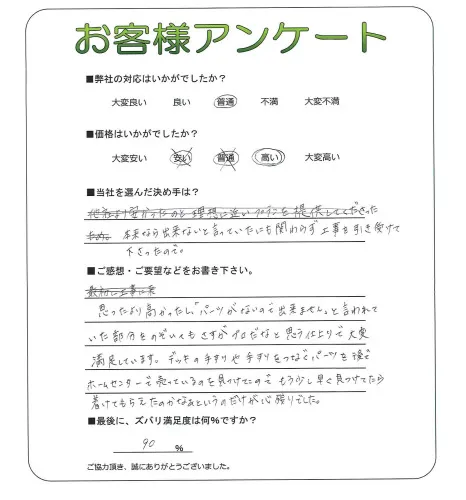 お客様アンケート
■弊社の対応はいかがでしたか？
大変良い 良い 普通 不満 大変不満
■価格はいかがでしたか？
大変安い 安い 普通 高い 大変高い
■当社を選んだ決め手は？
他社より安かったのと理想に近いプランを提供してくださった
ため。 本来なら出来ないと言っていたにも関わらず工事を引き受けて
下さったので。
■ご感想・ご要望などをお書き下さい。
最初に工事に来
思ったより高かったし「パーツがないので出来ません」と言われて
いた部分をのぞいてもさすがプロだなと思う仕上りで大変
満足しています。デッキの手すりや手すりをつなぐパーツを後で
ホームセンターで売っているのを見つけたので もう少し早く見つけてたら
着けてもらえたのかなぁというのだけが心残りでした。
■最後に、ズバリ満足度は何％ですか？
90 ％
ご協力頂き、誠にありがとうございました。